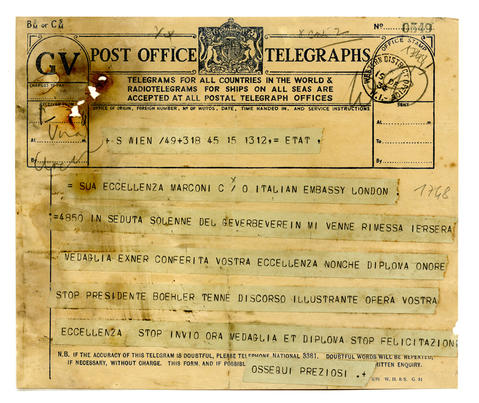 B¹ or C¹
No 0549
GV
POST OFFICE TELEGRAPHS
TELEGRAMS FOR ALL COUNTRIES IN THE WORLD &
RADIOTELEGRAMS FOR SHIPS ON ALL SEAS ARE
ACCEPTED AT ALL POSTAL TELEGRAPH OFFICES
OFFICE STAMP
OFFICE OF ORIGIN, FOREIGN NUMBER, NO OF WORDS, DATE, TIME HANDED IN, AND SERVICE INSTRUCTIONS
SENT
At
To
By
At
By
+S WIEN /49+318 45 15 1312,= ETAT,
= SUA ECCELLENZA MARCONI C/O ITALIAN EMBASSY LONDON.
1748
=4850 IN SEDUTA SOLENNE DEL GEVERBEVEREIN MI VENNE RIMESSA IERSERA
MEDAGLIA EXNER CONFERITA VOSTRA ECCELLENZA NONCHE DIPLOMA ONORE
STOP PRESIDENTE BOEHLER TENNE DISCORSO ILLUSTRANTE OPERA VOSTRA
ECCELLENZA. STOP INVIO ORA MEDAGLIA ET DIPLOMA STOP FELICITAZIONI
N.B. IF THE ACCURACY OF THIS TELEGRAM IS DOUBTFUL, PLEASE TELEPHONE NATIONAL 3381. DOUBTFUL WORDS WILL BE REPEATED,
IF NECESSARY, WITHOUT CHARGE. THIS FORM, AND IF POSSIBLE WRITTEN ENQUIRY.
OSSEQUI PREZIOSI.+